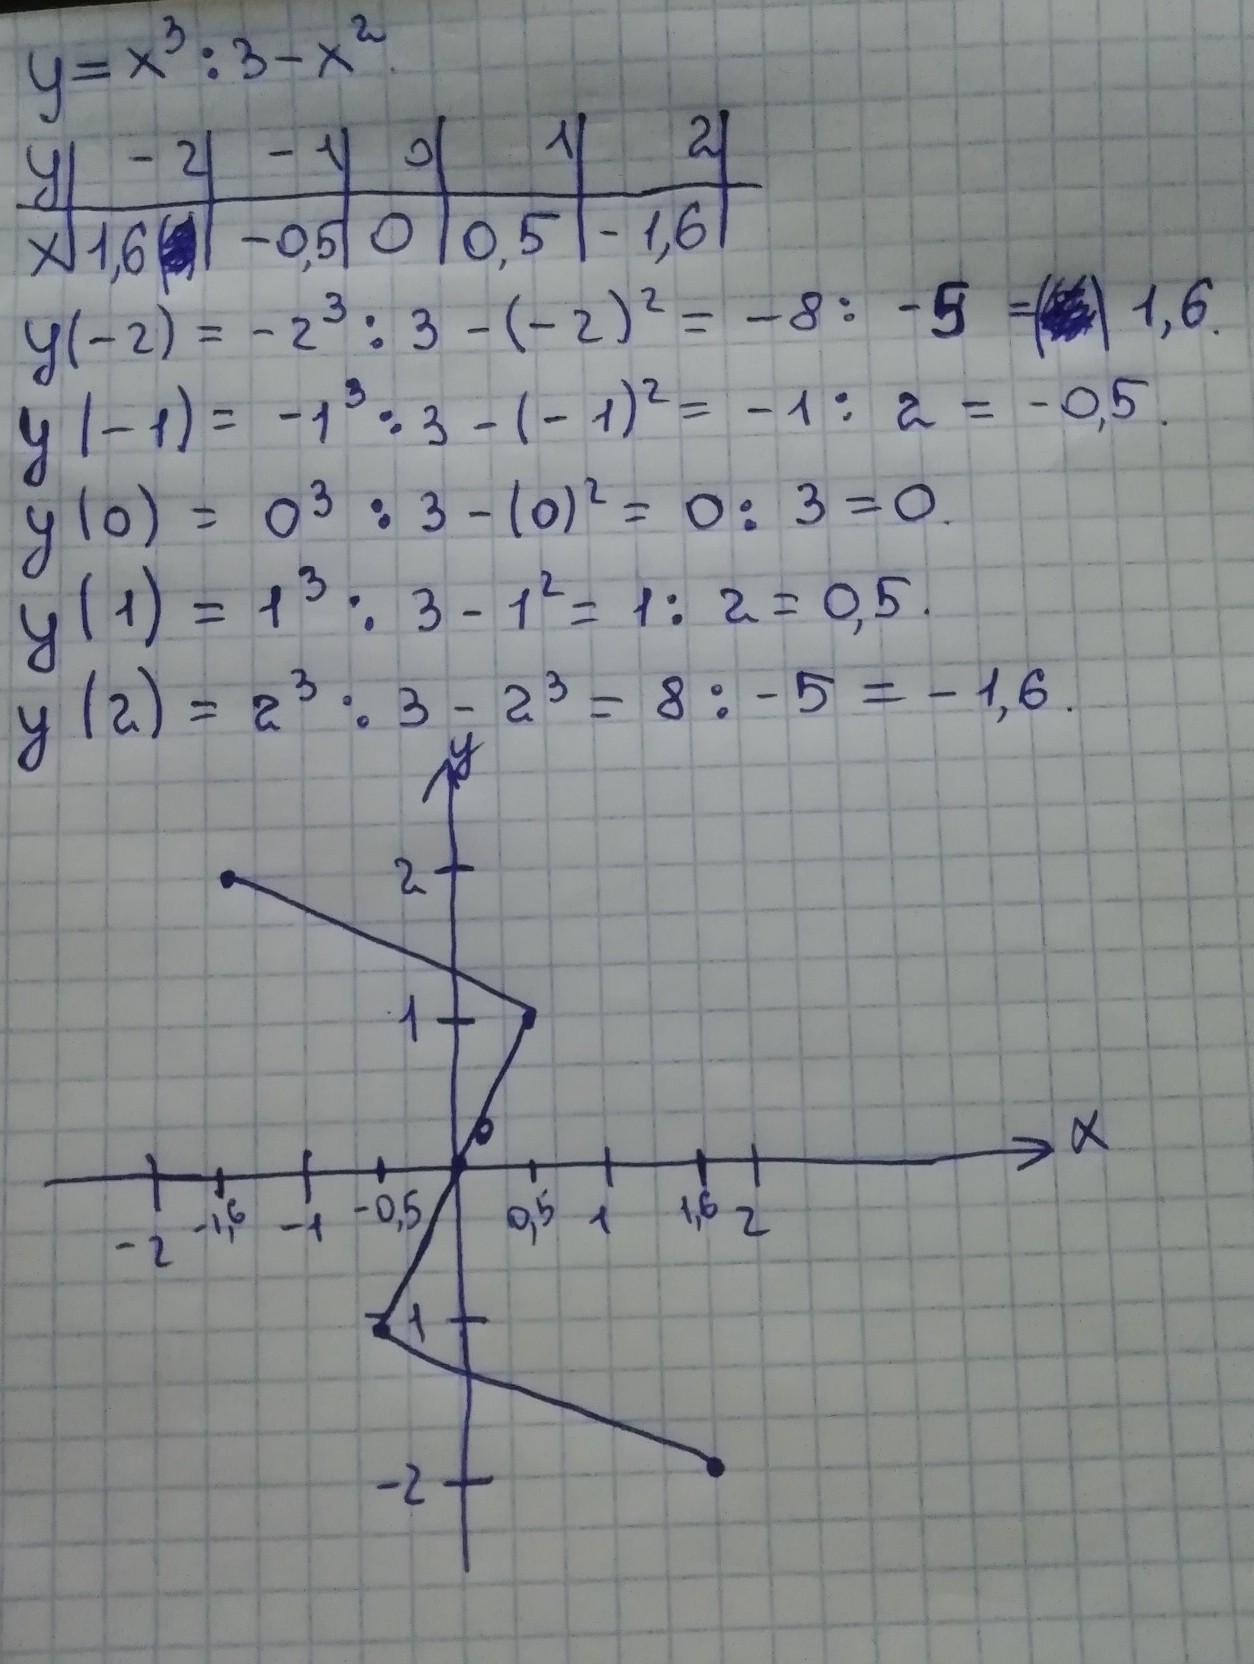 y = x³ : 3 - x².
y | -2 | -1 | 0 | 1 | 2
x | 1,6 | -0,5 | 0 | 0,5 | -1,6
y(-2) = -2³ : 3 - (-2)² = -8 : -5 = 1,6.
y(-1) = -1³ : 3 - (-1)² = -1 : 2 = -0,5.
y(0) = 0³ : 3 - (0)² = 0 : 3 = 0.
y(1) = 1³ : 3 - 1² = 1 : 2 = 0,5.
y(2) = 2³ : 3 - 2³ = 8 : -5 = -1,6.
y
2
1
0
x
-2 -1,6 -1 -0,5 0,5 1 1,6 2
-1
-2